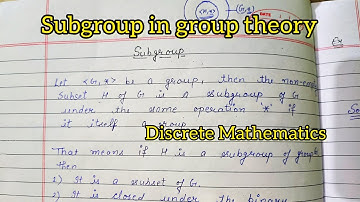 Subgroup in group theory
<H,*>
(G,*)
DATE
Ex
Subgroup
Let <G,*> be a group, then the non-em
Subset H of G is a subgroup of G
under the same operation '*' if
it itself a group.
Discrete Mathematics
That means if H is a subgroup of group
then
1) It is a subset of G.
2) It is closed under the binary